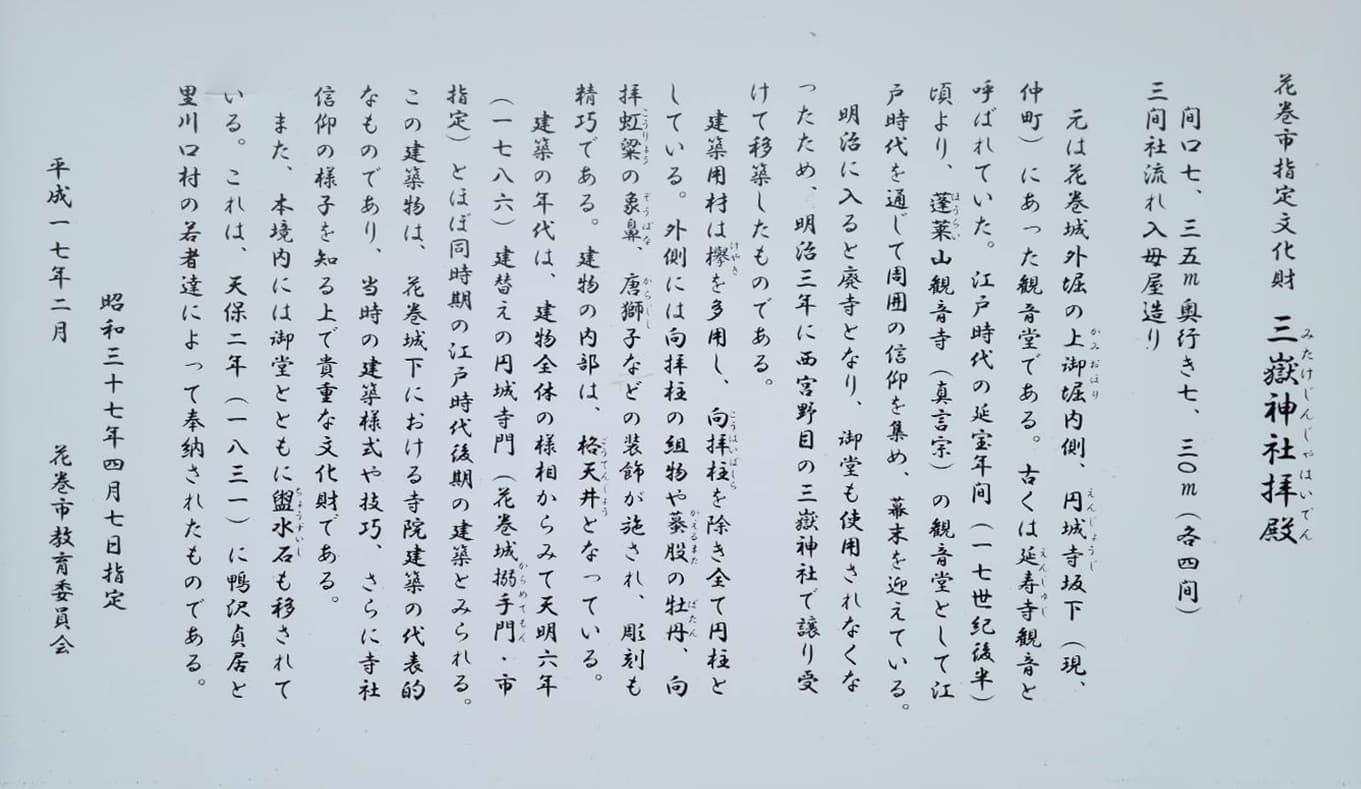 花巻市指定文化財　三嶽神社拝殿
みたけじんじゃはいでん
間口七、三五m奥行き七、三〇m（各四間）
三間社流れ入母屋造り
元は花巻城外堀の上御堀内側、円城寺坂下（現、
かみおほり　えんじょうじ
仲町）にあった観音堂である。古くは延寿寺観音と
えんじゅじ
呼ばれていた。江戸時代の延宝年間（一七世紀後半）
頃より、蓬莱山観音寺（真言宗）の観音堂として江
ほうらい
戸時代を通じて周囲の信仰を集め、幕末を迎えている。
明治に入ると廃寺となり、御堂も使用されなくな
ったため、明治三年に西宮野目の三嶽神社で譲り受
けて移築したものである。
建築用材は欅を多用し、向拝柱を除き全て円柱と
けやき　こうはいばしら
している。外側には向拝柱の組物や蟇股の牡丹、向
かえるまた　ぼたん
拝虹梁の象鼻、唐獅子などの装飾が施され、彫刻も
こうりょう　ぞうばな　からじし
精巧である。建物の内部は、格天井となっている。
ごうてんじょう
建築の年代は、建物全体の様相からみて天明六年
（一七八六）建替えの円城寺門（花巻城搦手門・市
からめてもん
指定）とほぼ同時期の江戸時代後期の建築とみられる。
この建築物は、花巻城下における寺院建築の代表的
なものであり、当時の建築様式や技巧、さらに寺社
信仰の様子を知る上で貴重な文化財である。
また、本境内には御堂とともに盥水石も移されて
ちょうずいし
いる。これは、天保二年（一八三一）に鴨沢貞居と
里川口村の若者達によって奉納されたものである。
昭和三十七年四月七日指定
平成一七年二月　花巻市教育委員会